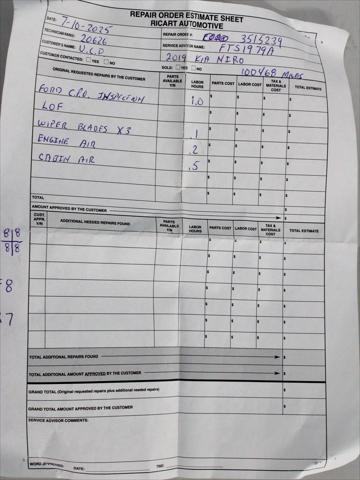 REPAIR ORDER ESTIMATE SHEET
RICART AUTOMOTIVE
DATE: 7-10-2025
REPAIR ORDER #: FORD 3515239
TECHNICIAN/ASM: 20626
SERVICE ADVISOR NAME: FTS1979A
CUSTOMER'S NAME: U.C.P
2019 KIA NIRO
CUSTOMER CONTACTED: YES NO
SOLD: YES NO
100468 MILES
ORIGINAL REQUESTED REPAIRS BY THE CUSTOMER PARTS AVAILABLE Y/N LABOR HOURS PARTS COST LABOR COST TAX & MATERIALS COST TOTAL ESTIMATE
FORD C.P.O. INSPECTION 1.0 $ $ $ $
LOF $ $ $ $
WIPER BLADES X3 .1 $ $ $ $
ENGINE AIR .2 $ $ $ $
CABIN AIR .5 $ $ $ $
$ $ $ $
TOTAL $
AMOUNT APPROVED BY THE CUSTOMER $
CUST. APPR. Y/N ADDITIONAL NEEDED REPAIRS FOUND PARTS AVAILABLE Y/N LABOR HOURS PARTS COST LABOR COST TAX & MATERIALS COST TOTAL ESTIMATE
8|8
8|8
$ $ $ $
$ $ $ $
8
$ $ $ $
7
$ $ $ $
$ $ $ $
$ $ $ $
TOTAL ADDITIONAL REPAIRS FOUND $
TOTAL ADDITIONAL AMOUNT APPROVED BY THE CUSTOMER $
GRAND TOTAL (Original requested repairs plus additional needed repairs) $
GRAND TOTAL AMOUNT APPROVED BY THE CUSTOMER $
SERVICE ADVISOR COMMENTS:
DATE: